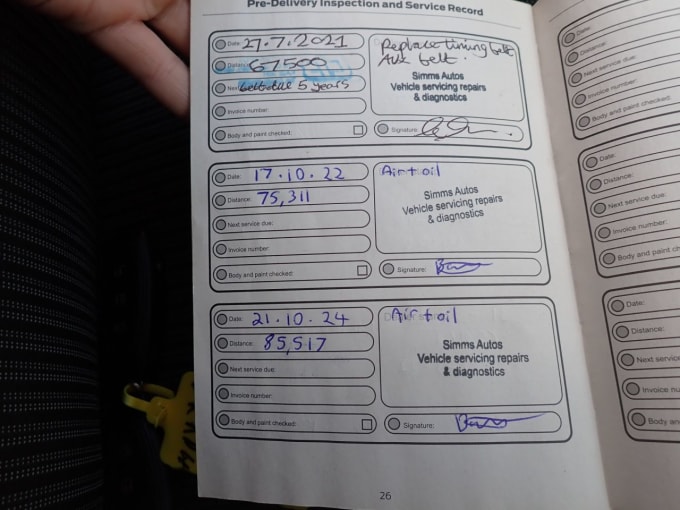 Pre-Delivery Inspection and Service Record
Date: 27.7.2021
Distance: 67500
Next belt due 5 years
Invoice number:
Body and paint checked:
Replace timing belt
Aux belt.
Simms Autos
Vehicle servicing repairs
& diagnostics
Signature:
Date: 17.10.22
Distance: 75,311
Next service due:
Invoice number:
Body and paint checked:
Air + oil
Simms Autos
Vehicle servicing repairs
& diagnostics
Signature:
Date: 21.10.24
Distance: 85,517
Next service due:
Invoice number:
Body and paint checked:
Air + oil
Simms Autos
Vehicle servicing repairs
& diagnostics
Signature:
26
Date:
Distance:
Next service due:
Invoice number:
Body and paint checked:
Date:
Distance:
Next service due:
Invoice number:
Body and paint ch
Date:
Distance:
Next servic
Invoice nu
Body an